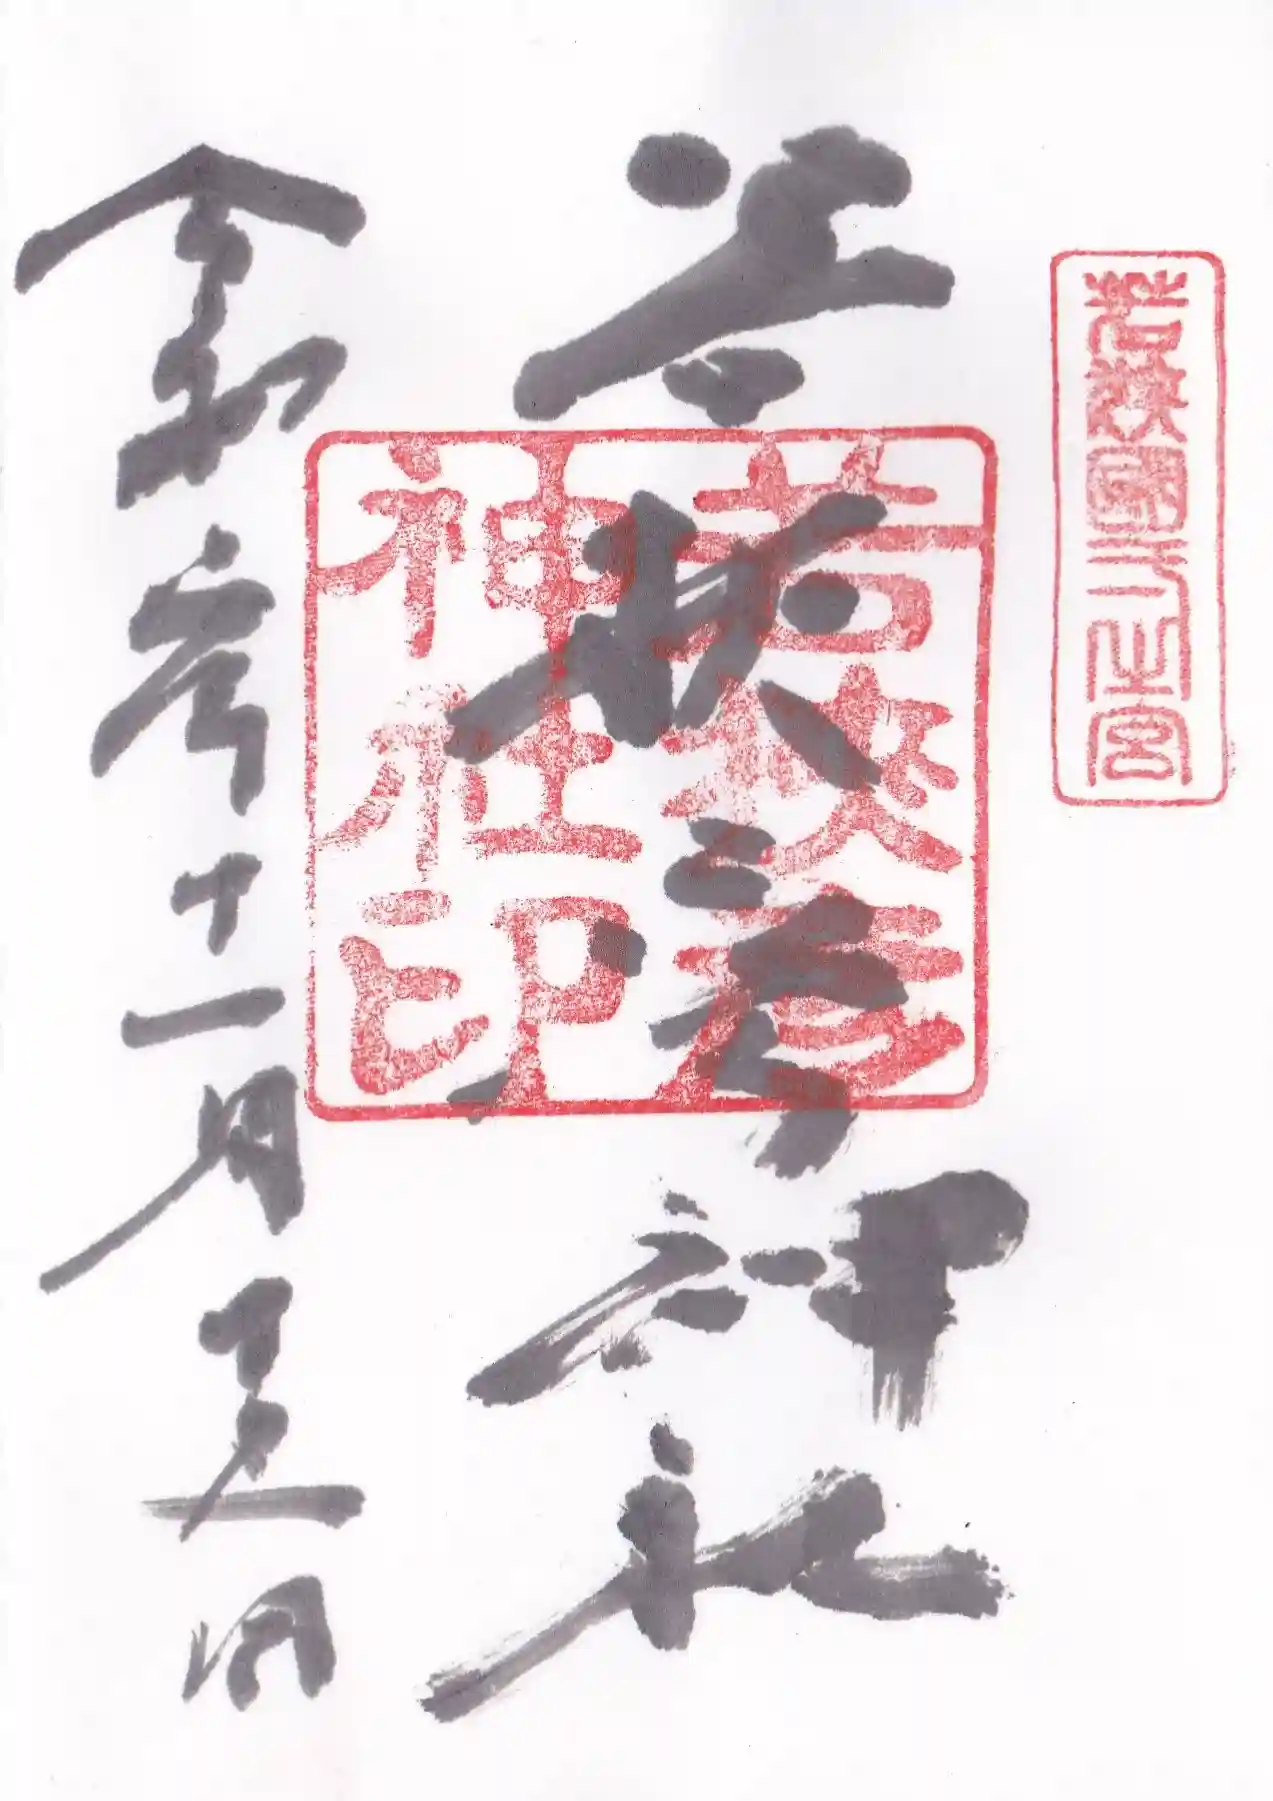 若狹國一之宮
若狭彦神社
若狭彦
神社印
令和参年十一月五日